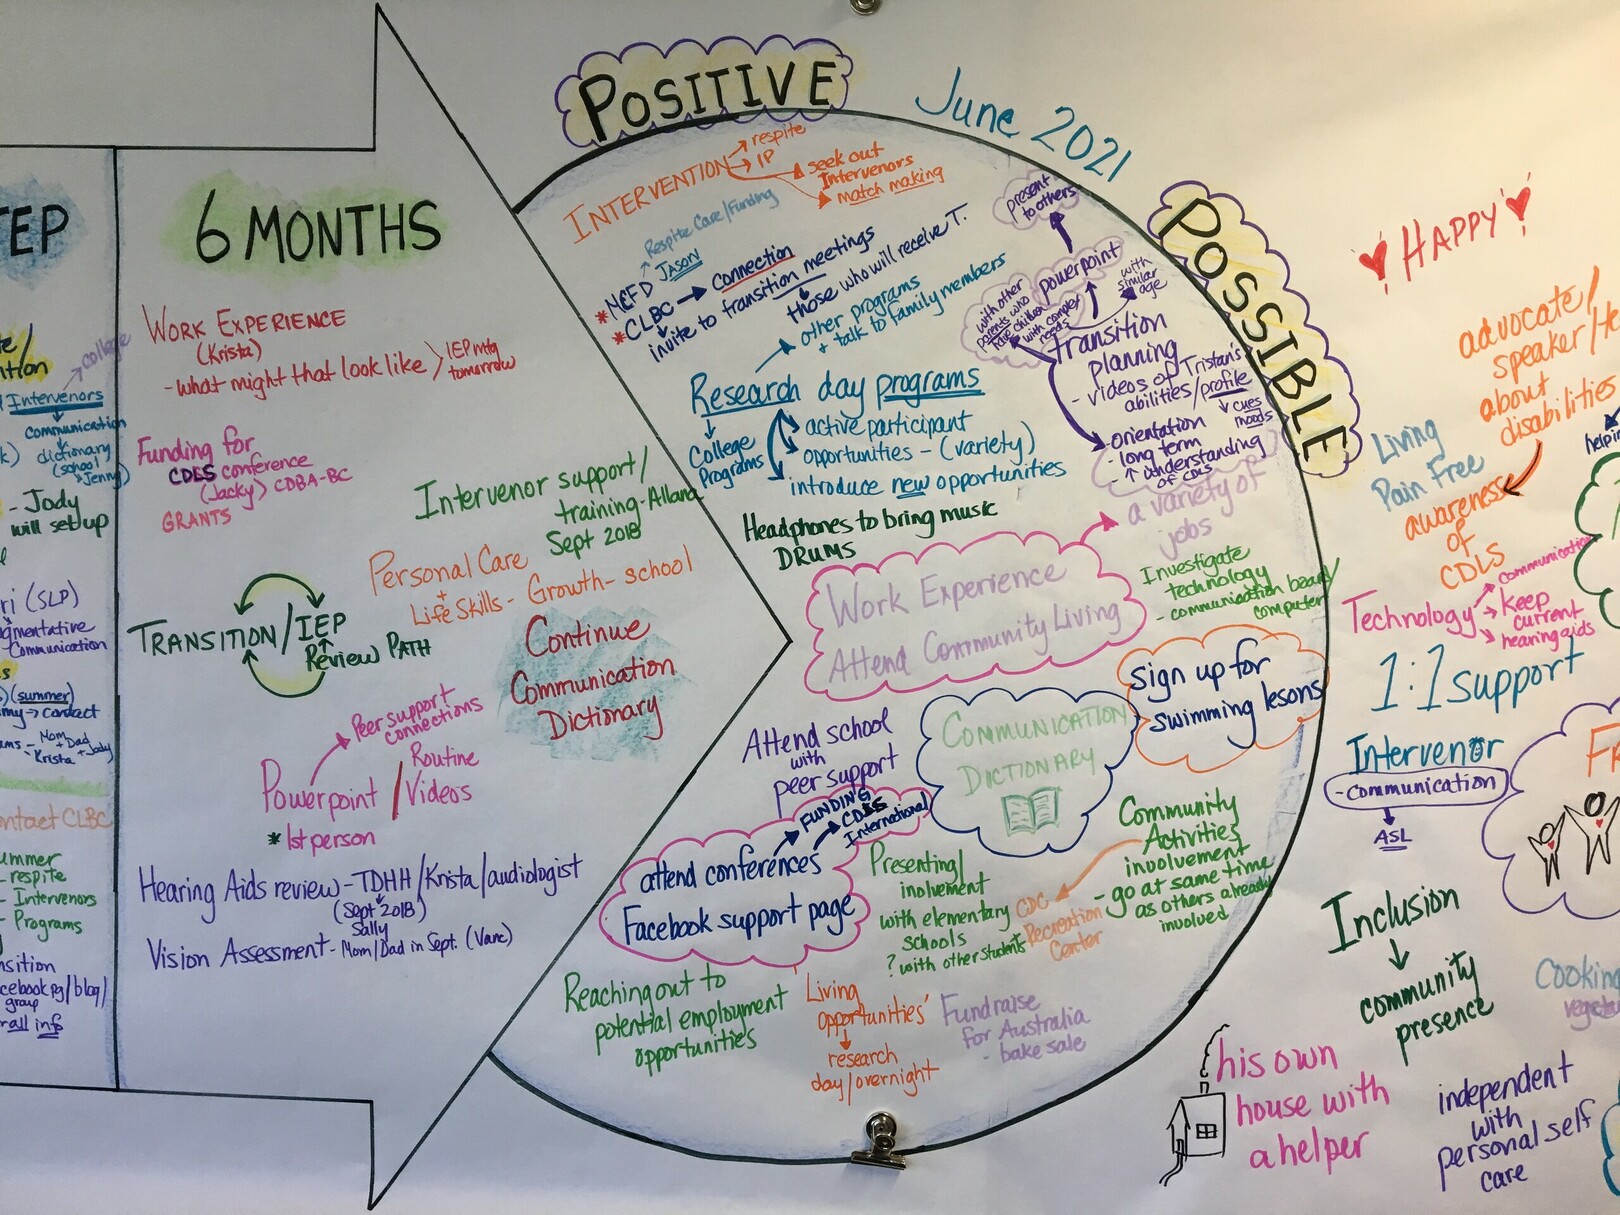 TEP
college
Intervenors
Communication
dictionary
(school
Jenny)
- Jody
will set up
(SLP)
Communication
(summer)
contact
Mom
+ Dad
Krista + Jody
contact CLBC
- respite
- Intervenors
- Programs
group
info
6 MONTHS
WORK EXPERIENCE
(Krista)
- what might that look like > IEP mtg
tomorrow
Funding for
CDLS conference
(Jacky) CDBA-BC
GRANTS
Intervenor support/
training - Allana
Sept 2018
Personal Care
+
Life Skills - Growth - school
TRANSITION/IEP
Review PATH
Continue
Communication
Dictionary
Peer support
connections
Powerpoint / Routine
Videos
* 1st person
Hearing Aids review - TDHH/Krista/audiologist
(Sept 2018)
Sally
Vision Assessment - Mom/Dad in Sept. (Vanc)
POSITIVE
June 2021
POSSIBLE
INTERVENTION
respite
IP
seek out
Intervenors
match making
Respite Care/Funding
JASON
* MCFD
* CLBC → Connection
invite to transition meetings
those who will receive T.
present
to others
powerpoint
with
similar
age
with other
parents who
have children
with complex
needs
transition
planning
- videos of Tristan's
abilities/profile
cues
moods
- orientation
- long term
- ↑ understanding
of CDLS
other programs
+ talk to family members
Research day programs
College
Programs
active participant
opportunities - (variety)
introduce new opportunities
Headphones to bring music
DRUMS
Work Experience
Attend Community Living
a variety of
jobs
Investigate
technology
- communication board/
computer
Sign up for
swimming lesons
COMMUNICATION
DICTIONARY
Attend school
with
peer support
FUNDING
CDLS
International
attend conferences
Facebook support page
Presenting/
inolvement
with elementary
schools
? with other students
Community
Activities
involvement
- go at same time
as others already
involved
CDC
Recreation
Center
Reaching out to
potential employment
opportunities
Living
opportunities'
research
day/overnight
Fundraise
for Australia
- bake sale
HAPPY
advocate/
speaker/
about
disabilities
awareness
of
CDLS
Living
Pain Free
Technology
communication
keep
current
hearing aids
1:1 support
Intervenor
- communication
ASL
Inclusion
community
presence
Cooking
his own
house with
a helper
independent
with
personal self
care